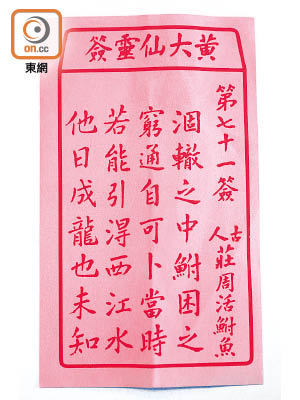 on.cc
東網
黄大仙靈簽
第七十一簽
古人 莊周活鮒魚
涸轍之中鮒困之
窮通自可卜當時
若能引淂西江水
他日成龍也未知